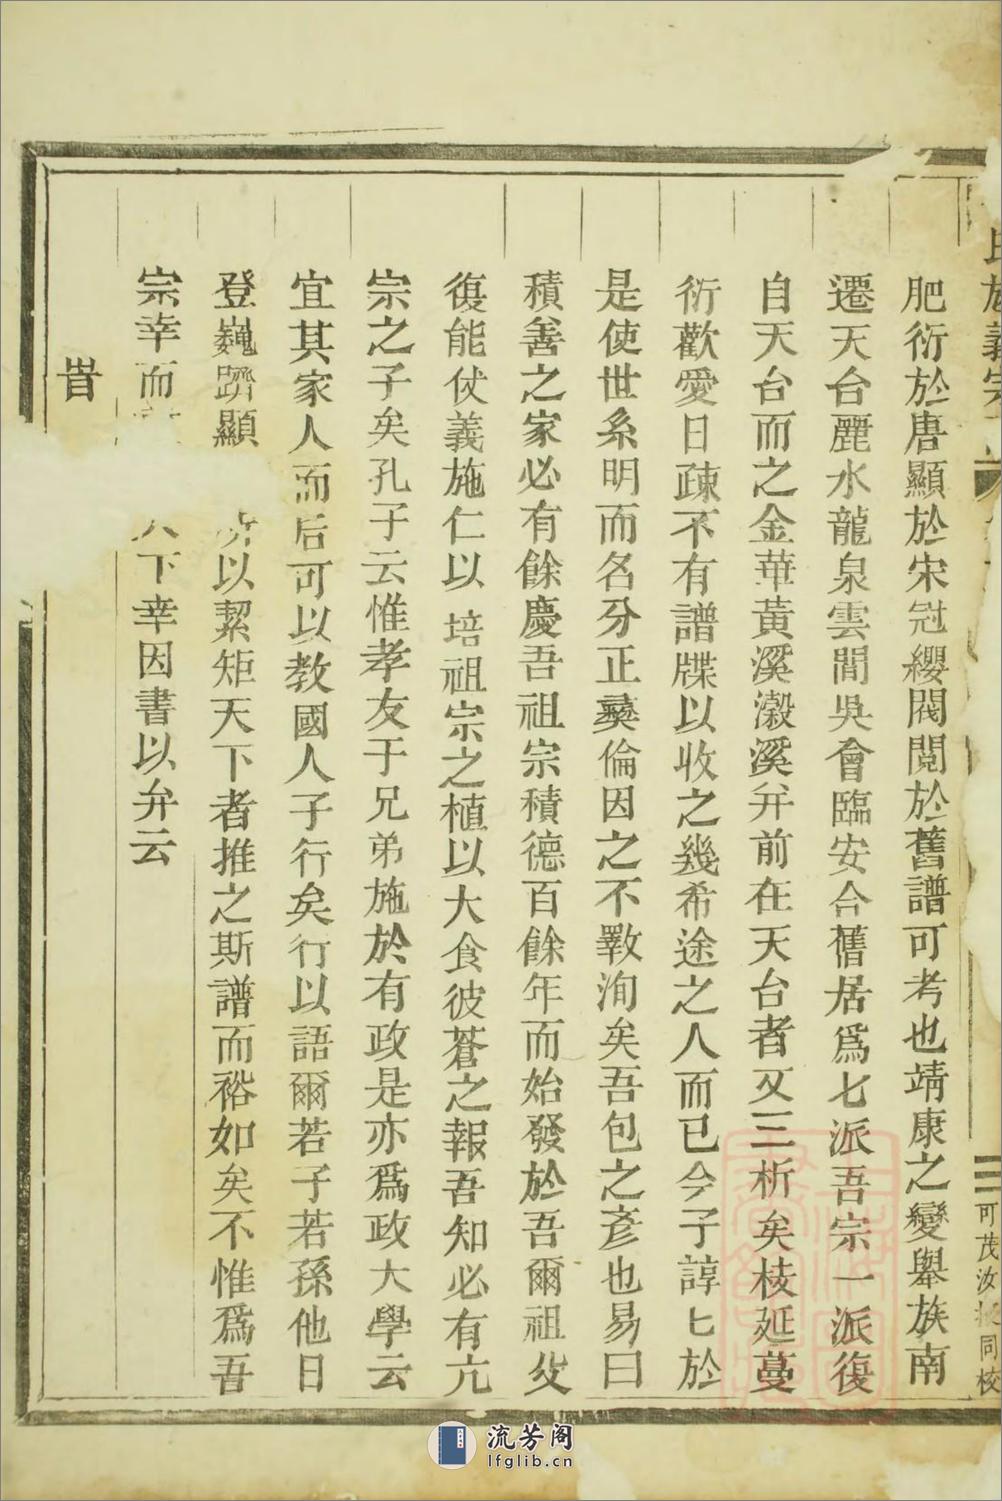 肥衍於唐顯於宋冠纓閥閱於舊譜可考也靖康之變舉族南
遷天台麗水龍泉雲間吳會臨安合舊居爲七派吾宗一派復
自天台而之金華黃溪瀔溪并前在天台者又三析矣棱延蔓
衍歡愛日疎不有譜牒以收之幾希途之人而已今子諄匕於
是使世系明而名分正彝倫因之不斁洵矣吾包之彥也易曰
積善之家必有餘慶吾祖宗積德百餘年而始發於吾爾祖父
復能仗義施仁以培祖宗之植以大食彼蒼之報吾知必有亢
宗之子矣孔子云惟孝友于兄弟施於有政是亦爲政大學云
宜其家人而后可以教國人子行矣行以語爾若子若孫他日
登巍躋顯 所以絜矩天下者推之斯譜而裕如矣不惟爲吾
宗幸而 下幸因書以弁云
旹
可茂汝 同校
流芳阁
lfglib.cn